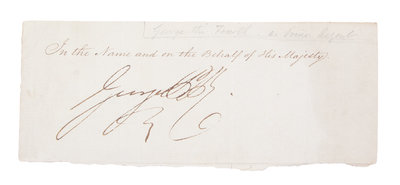 George the Fourth as Prince Regent
In the Name and on the Behalf of His Majesty.
George P R